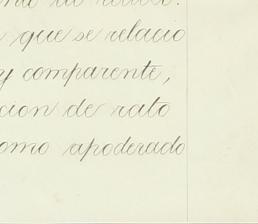 que se relacio
y comparente,
cion de rato
omo apoderado